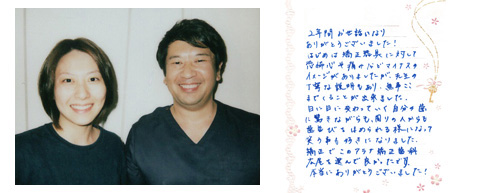 2年間お世話になり
ありがとうございました！
はじめは矯正器具に対して
恐怖心や痛みなどマイナスの
イメージがありましたが、先生の
丁寧な説明もあり、無事ここ
まてくることが出来ました。
日に日に変わっていく自分の歯
に驚きながらも、周りの人からも
歯並びをほめられる様になって
笑う事も好きになりました。
矯正でこのプラザ矯正歯科
広尾を選んで良かったです
本当にありがとうございました！